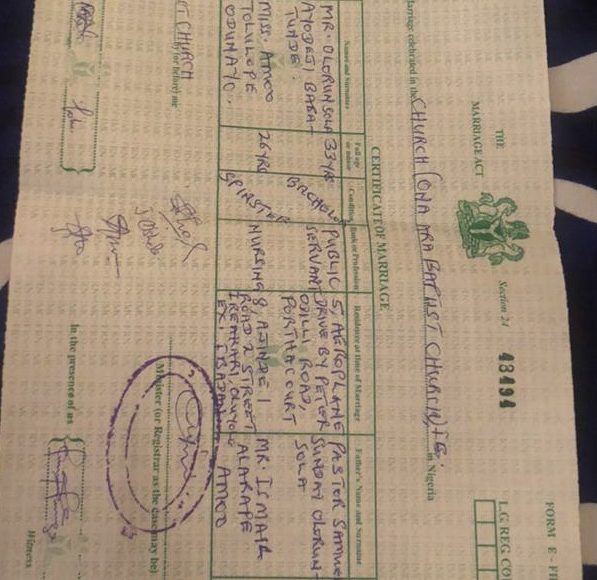 FORM E - FI
L.G REG CO
43494
Section 24
THE
MARRIAGE ACT
Marriage celebrated in the CHURCH (ONA ARA BAPTIST CHURCH) in Nigeria
CERTIFICATE OF MARRIAGE
Names and Surnames
Full age or minor
Condition
Rank or Profession
Residence at time of Marriage
Father's Name and Surname
MR. OLORUNSOLA
AYODEJI BABAT
TUNDE
33YRS
BACHELOR
PUBLIC
SERVANT
5, AEROPLANE
DRIVE BY PETER
ODILI ROAD,
PORTHACOURT
PASTOR SAMUE
SUNDAY OLORUN-
SOLA
MISS. AMOO
TOLULOPE
ODUNAYO.
26YRS
SPINSTER
NURSING
8, AJINDE 1
ROAD 2 STREET
IREAKARI, OLUYOLE
EX. IBADAN
MR. ISMAIL
ALARAPE
AMOO
ST CHURCH
by (or before) me
Minister (or Registrar as the case may be)
In the presence of us
Witness